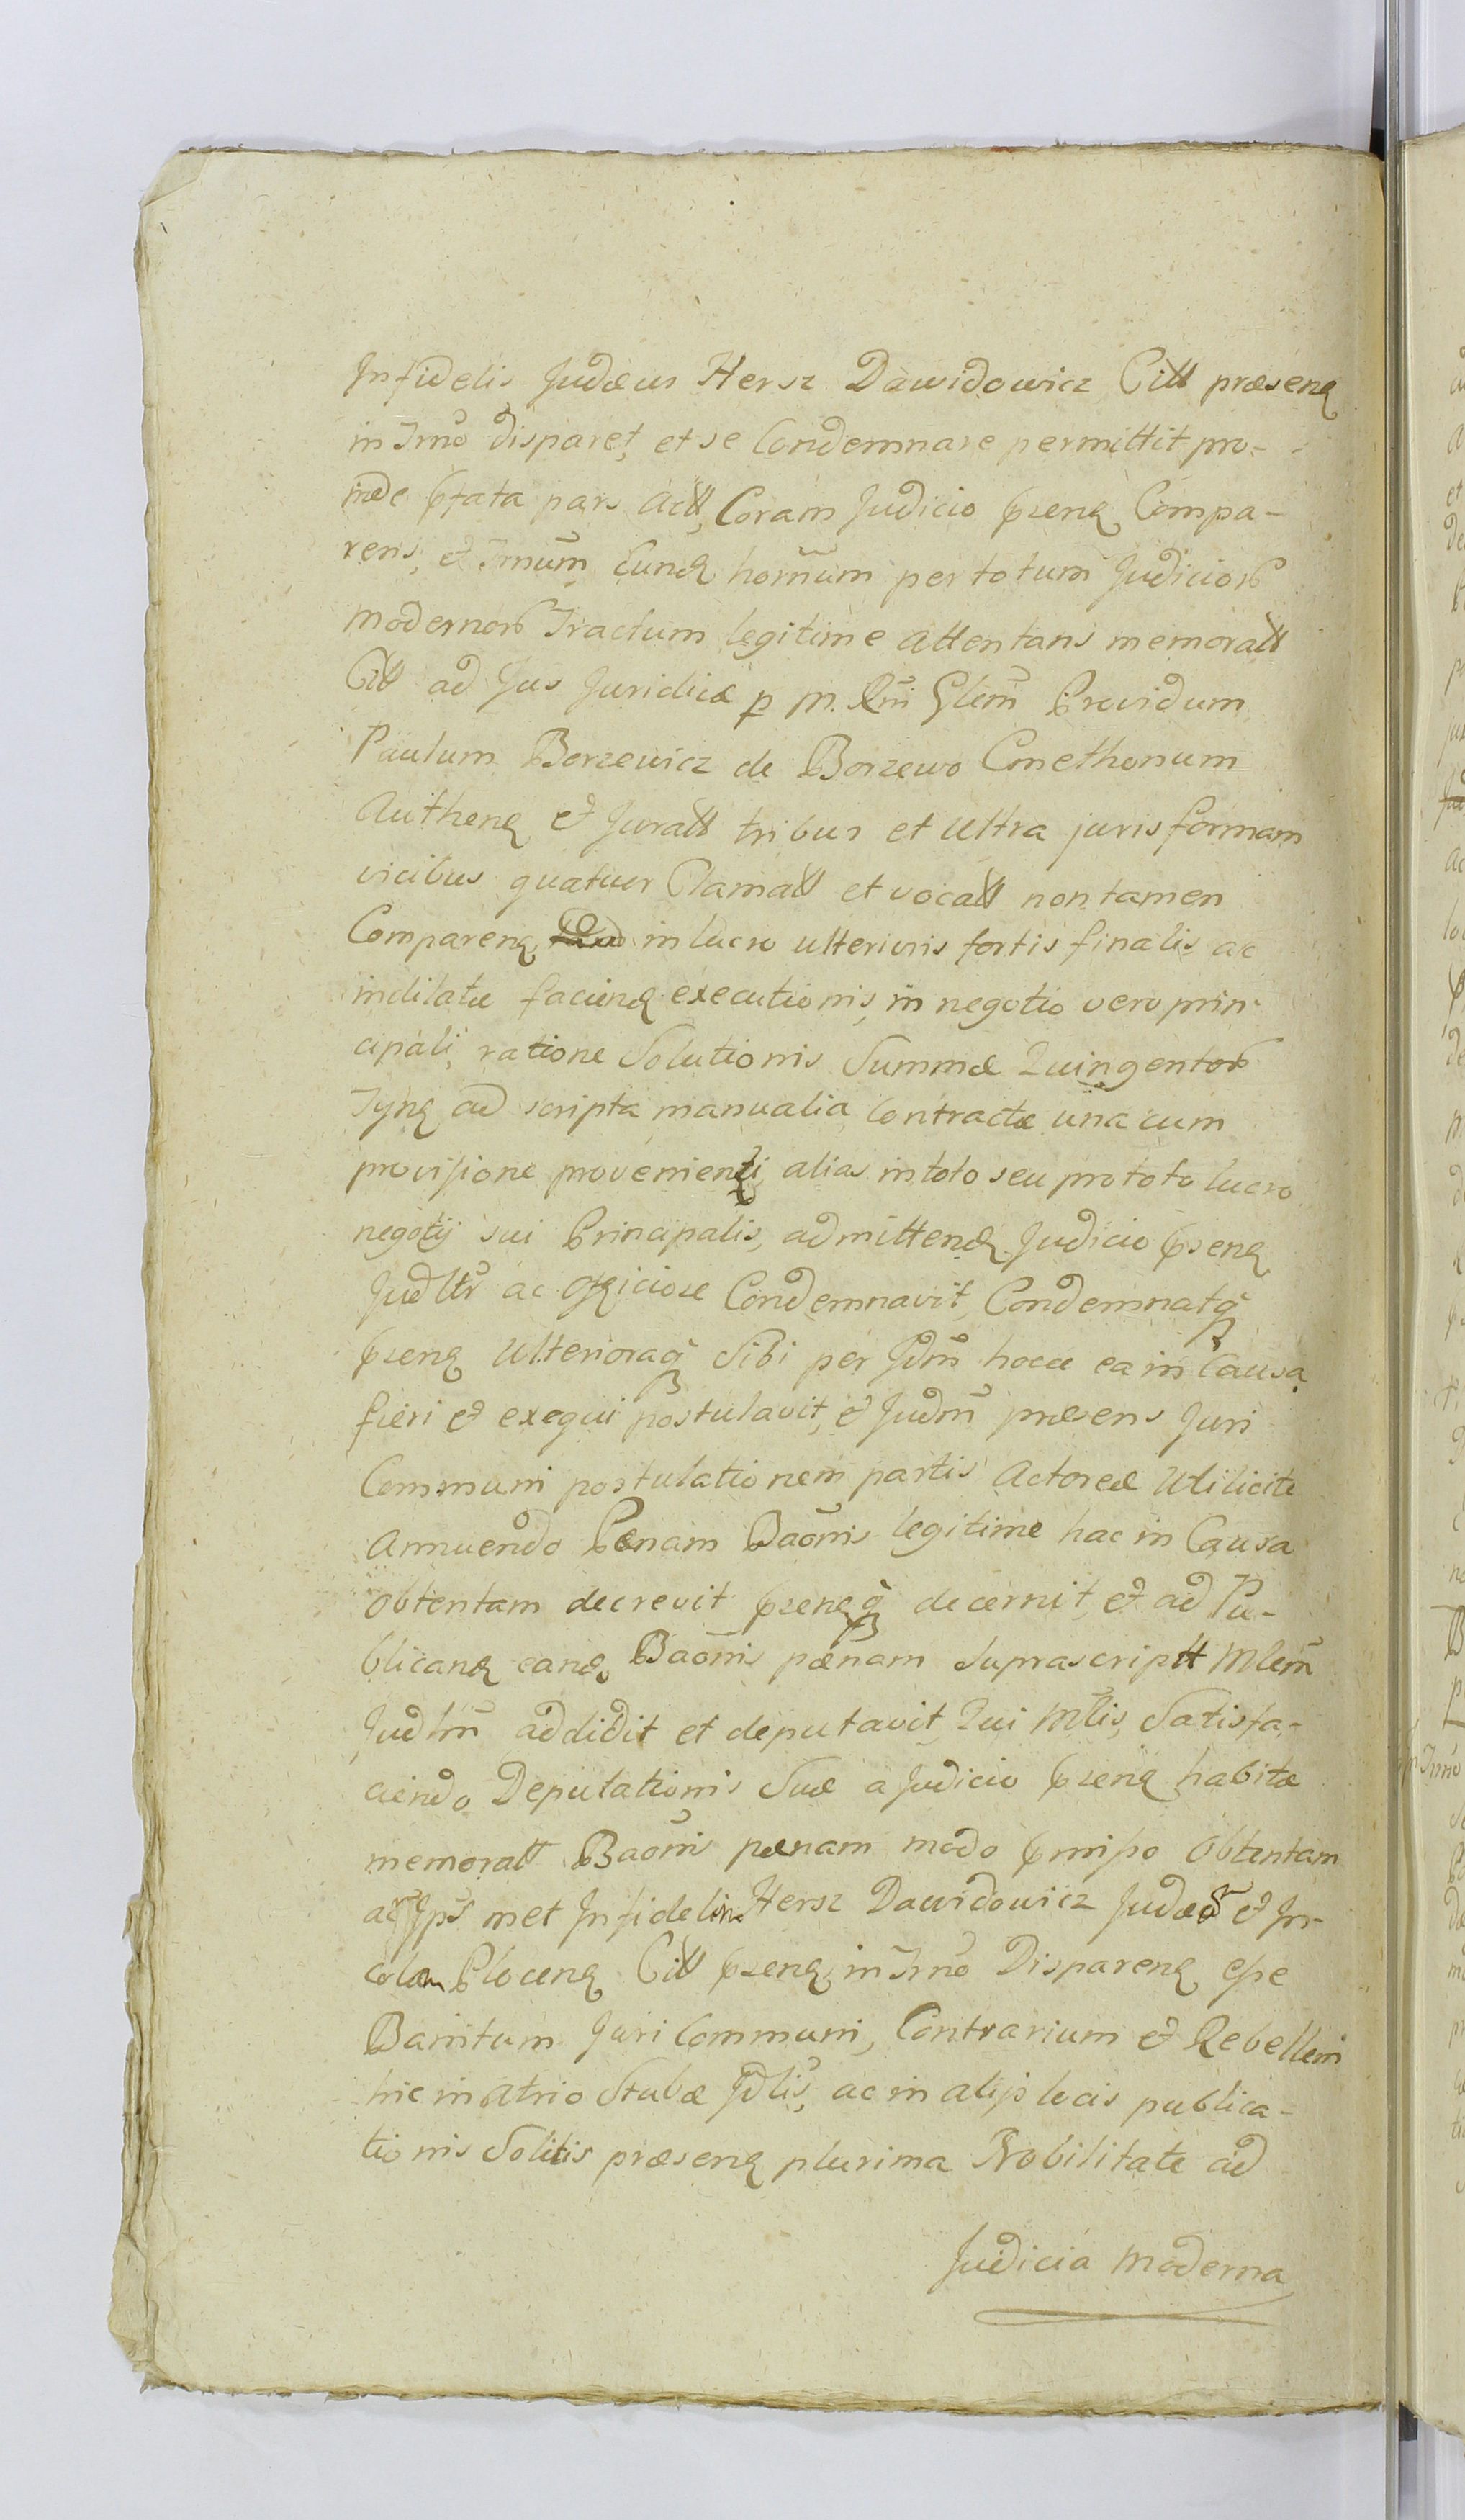 Infidelis Judæus Hersz Dawidowicz Citt præsenꝗ
in Trnō disparet, et se Condemnare permittit pro-
inde pfata pars Actt, Coram Judicio pzenꝗ Compa-
rens, et Trnum Eundꝗ hornum per totum Judiciorꝶ
modernorꝶ Tractum legitime Attentans memoratt
Citt ad Jus Juridice p M. Rni Glem Providum
Paulum Borzewicz de Borzewo Cmethonum
Authenꝗ et Juratt tribus et Ultra juris formam
vicibus quatuor Clamatt et vocatt non tamen
Comparenꝗ in lucro ulterioris fortis finalis ac
indilatæ faciendꝗ executionis, in negotio vero prin-
cipali, ratione Solutionis Summæ Quingentorꝶ
Tynꝗ ad scripta manualia Contractæ una cum
provisione provenienti, alias in toto seu pro toto lucro
negotij sui Principalis, admittendꝗ Judicio pzenꝗ
Judltr ac officiose Condemnavit, Condemnatꝗ
pzenꝗ Ulterioraꝗ Sibi per Jdm hocce ea in Causa
fieri et exequi postulavit, et Judm præsens Juri
Communi postulationem partis Actoreæ Uti licite
Annuendo Pœnam Baōnis legitime hac in Causa
obtentam decrevit pzenꝗꝗ decernit, et ad Pu-
blicandꝗ eandꝗ Baōnis pœnam Suprascriptt Mlem
Judlm addidit et deputavit, Qui Mlis, Satisfa-
ciendo Deputationis Suæ a Judicio pzenꝗ habitæ
memoratt Baōnis pœnam modo pmisso Obtentam
ac Jps met Infidelem Hersz Dawidowicz Judæum et In-
colam Plocenꝗ Citt pzenꝗ in Trnō Disparenꝗ esse
Banitum Juri Communi, Contrarium et Rebellem
hic in Atrio Stubæ Jdlis, ac in alijs locis publica-
tionis Solitis præsenꝗ plurima Nobilitate ad
Judicia Moderna